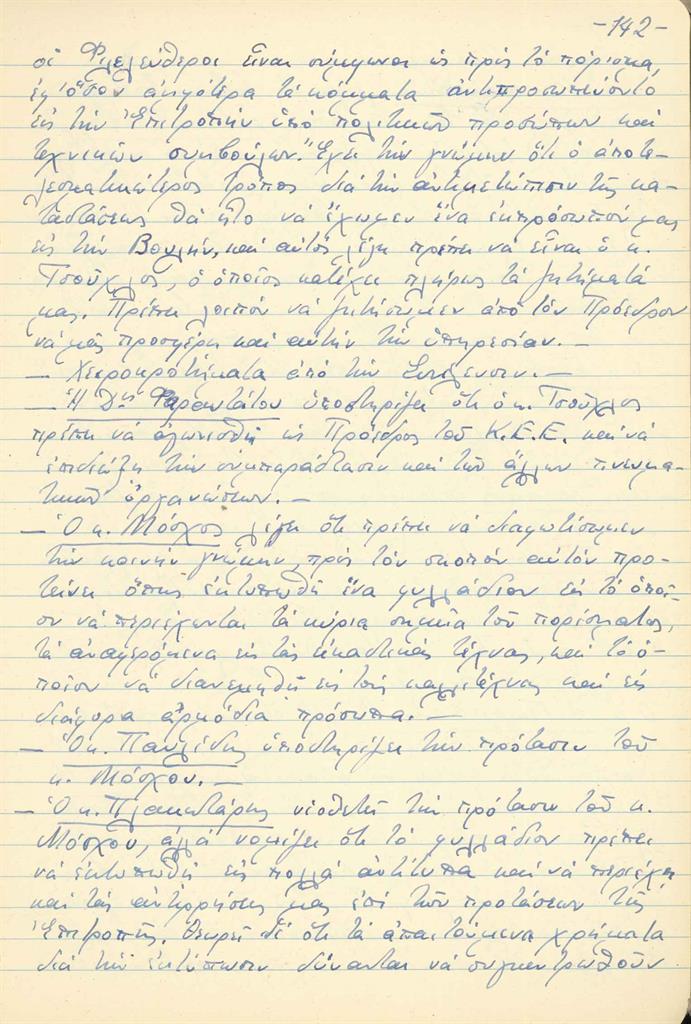 -142-
οἱ Φιλελεύθεροι εἶναι σύμφωνοι ὡς πρός τό πόρισμα,
ἐφ' ὅσον ἀμφότερα τά κόμματα ἀντιπροσωπεύοντο
εἰς τήν Ἐπιτροπήν ὑπό πολιτικῶν προσώπων καί
τεχνικῶν συμβούλων. Ἔχει τήν γνώμην ὅτι ὁ ἀποτε-
λεσματικώτερος τρόπος διά τήν ἀντιμετώπισιν τῆς κα-
ταστάσεως θά ἦτο νά ἔχωμεν ἕνα ἐκπρόσωπόν μας
εἰς τήν Βουλήν, καί αὐτός λέγει πρέπει νά εἶναι ὁ κ.
Τσοῦχλος, ὁ ὁποῖος κατέχει πλήρως τά ζητήματά
μας. Πρέπει λοιπόν νά ζητήσωμεν ἀπό τόν Πρόεδρον
νά μᾶς προσφέρῃ καί αὐτήν τήν ὑπηρεσίαν. —
— Χειροκροτήματα ἀπό τήν Συνέλευσιν. —
— Ἡ Δὶς Φαραντάτου ὑποστηρίζει ὅτι ὁ κ. Τσοῦχλος
πρέπει νά ἀγωνισθῇ ὡς Πρόεδρος τοῦ Κ.Ε.Ε. καί νά
ἐπιδιώξῃ τήν συμπαράστασιν καί τῶν ἄλλων πνευμα-
τικῶν ὀργανώσεων. —
— Ὁ κ. Μόσχος λέγει ὅτι πρέπει νά διαφωτίσωμεν
τήν κοινήν γνώμην, πρός τόν σκοπόν αὐτόν προ-
τείνει ὅπως ἐκτυπωθῇ ἕνα φυλλάδιον εἰς τό ὁποῖ-
ον νά περιέχωνται τά κύρια σημεῖα τοῦ πορίσματος,
τά ἀναφερόμενα εἰς τάς εἰκαστικάς τέχνας, καί τό ὁ-
ποῖον νά διανεμηθῇ εἰς τούς καλλιτέχνας καί εἰς
διάφορα ἁρμόδια πρόσωπα. —
— Ὁ κ. Παυλίδης ὑποστηρίζει τήν πρότασιν τοῦ
κ. Μόσχου. —
— Ὁ κ. Πλακωτάρης υἱοθετεῖ τήν πρότασιν τοῦ κ.
Μόσχου, ἀλλά νομίζει ὅτι τό φυλλάδιον πρέπει
νά ἐκτυπωθῇ εἰς πολλά ἀντίτυπα καί νά περιέχῃ
καί τάς ἀντιρρήσεις μας ἐπί τῶν προτάσεων τῆς
Ἐπιτροπῆς. Θεωρεῖ δέ ὅτι τά ἀπαιτούμενα χρήματα
διά τήν ἐκτύπωσιν δύνανται νά συγκεντρωθοῦν